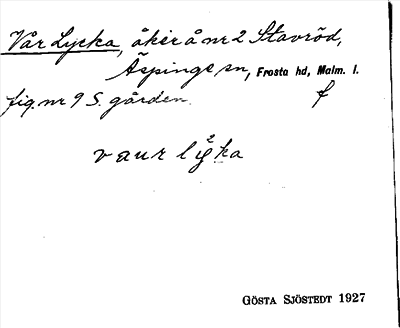 Vår Lycka, åker å nr 2 Stavröd,
Äspinge sn, Frosta hd, Malm. l.
fig. nr 9 S. gården. f
vaur lyka
GÖSTA SJÖSTEDT 1927